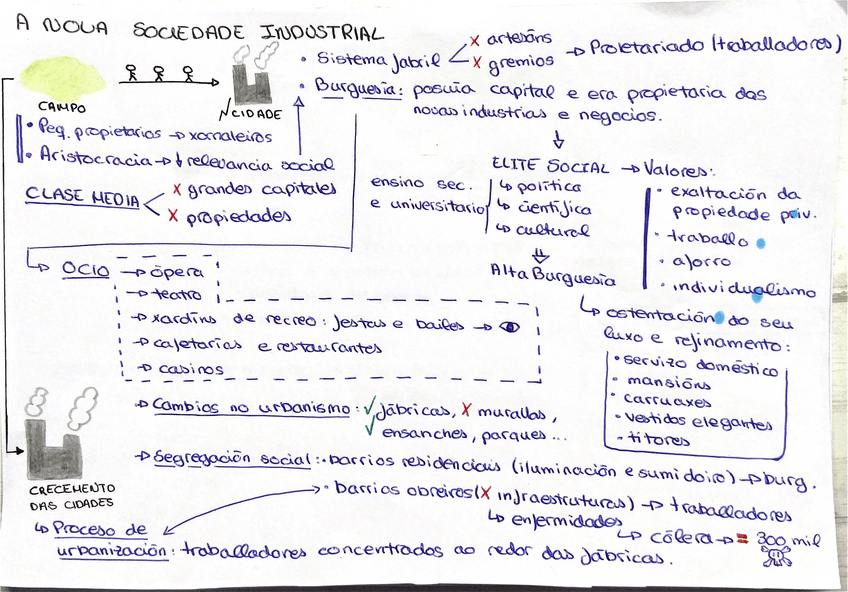 A NOVA SOCIEDADE INDUSTRIAL
CAMPO
CIDADE
• Sistema fabril
X artesáns
X gremios
→ Proletariado (traballadores)
• Burguesía: posuía capital e era propietaria das
novas industrias e negocios.
• Peq. propietarios → xornaleiros
• Aristocracia → ↓ relevancia social
CLASE MEDIA
X grandes capitales
X propiedades
ensino sec.
e universitario
ELITE SOCIAL → Valores:
↳ política
↳ científica
↳ cultural
Alta Burguesía
• exaltación da
propiedade priv.
• traballo
• aforro
• individualismo
↳ ostentación do seu
luxo e refinamento:
• servizo doméstico
• mansións
• carruaxes
• vestidos elegantes
• titores
↳ OCIO → ópera
→ teatro
→ xardíns de recreo: festas e bailes →
→ cafetarías e restaurantes
→ casinos
→ Cambios no urbanismo: ✓ fábricas, X murallas,
✓ ensanches, parques...
→ Segregación social: • barrios residenciais (iluminación e sumidoiro) → burg.
• barrios obreiros (X infraestruturas) → traballadores
↳ enfermidades
↳ cólera → = 300 mil
CRECEMENTO
DAS CIDADES
↳ Proceso de
urbanización: traballadores concentrados ao redor das fábricas.